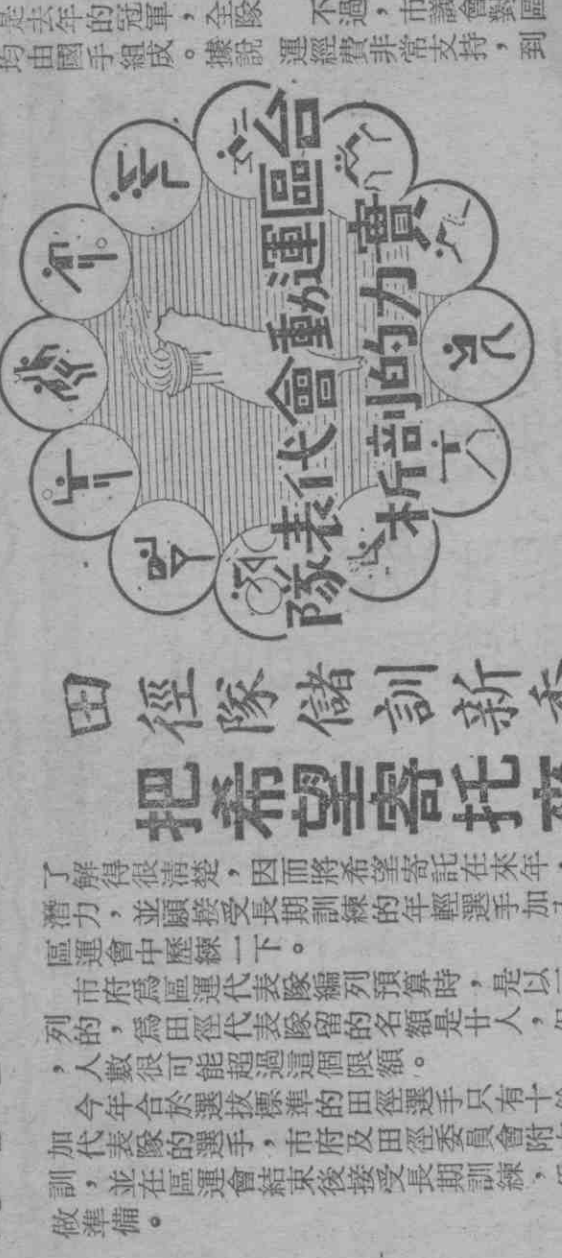 是去年的冠軍，全隊
均由國手組成。據說
不過，市議會對區
運經費非常支持，到
區運動會代表隊
實力的剖析
田徑隊儲訓新
把希望寄托
了解得很清楚，因而將希望寄託在來年，
潛力，並願接受長期訓練的年輕選手加
區運會中歷練一下。
市府爲區運代表隊編列預算時，是以
列的，爲田徑代表隊留的名額是廿人，
，人數很可能超過這個限額。
今年合於選拔標準的田徑選手只有十
加代表隊的選手，市府及田徑委員會附
訓，並在區運會結束後接受長期訓練，
做準備。